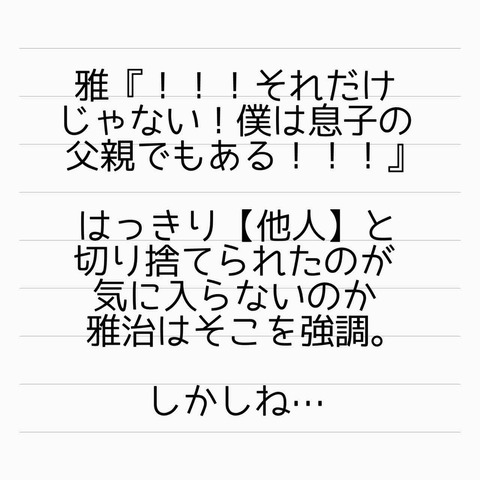 雅『！！！それだけ
じゃない！僕は息子の
父親でもある！！！』
はっきり【他人】と
切り捨てられたのが
気に入らないのか
雅治はそこを強調。
しかしね…